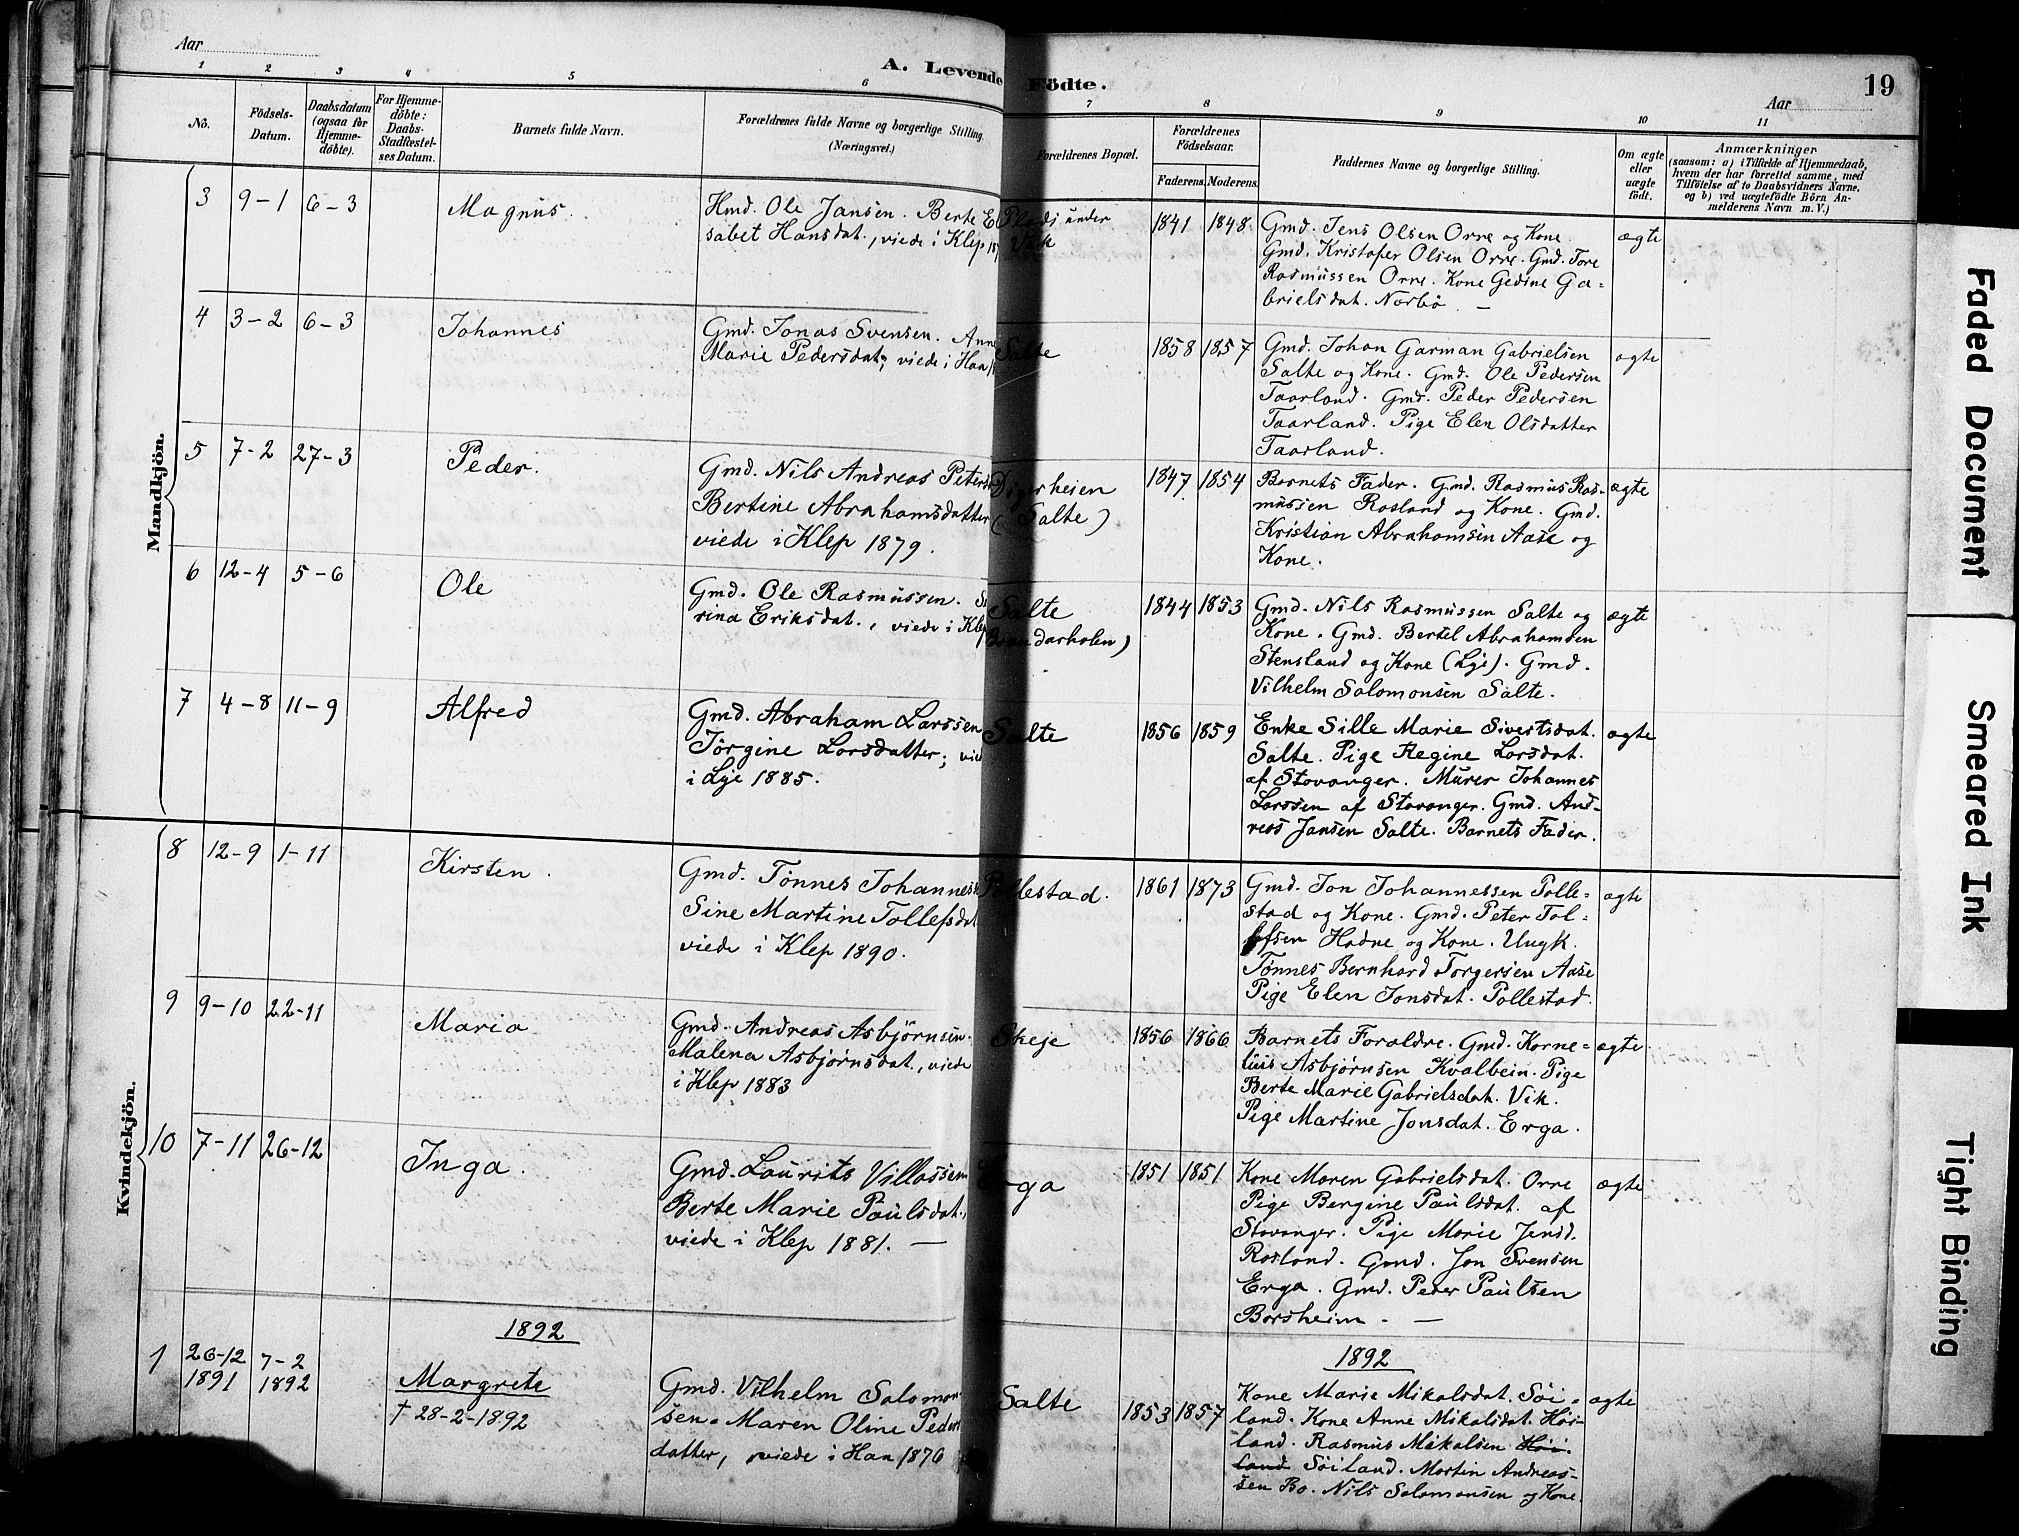 Aar
A. Levende Födte.
19
Aar
1 2 3 4 5 6 7 8 9 10 11
No.
Födsels-
Datum.
Daabsdatum
(ogsaa for
Hjemme-
döbte).
For Hjemme-
döbte:
Daabs-
Stadfæstel-
ses Datum.
Barnets fulde Navn.
Forældrenes fulde Navne og borgerlige Stilling.
(Næringsvei.)
Forældrenes Bopæl.
Forældrenes
Födselsaar.
Faderens. Moderens.
Faddernes Navne og borgerlige Stilling.
Om ægte
eller
uægte
födt.
Anmærkninger
(saasom: a) i Tilfælde af Hjemmedaab,
hvem der har forrettet samme, med
Tilföielse af to Daabsvidners Navne,
og b) ved uægtefödte Börn An-
melderens Navn m. V.)
Mandkjön.
3 9-1 6-3
Magnus.
Hmd. Ole Jansen. Berte E
sabet Hansdat., viede i Klep
Plads under
Vik
1841 1848
Gmd. Jens Olsen Orre og Kone.
Gmd. Kristofer Olsen Orre. Gmd. Tore
Rasmussen Orre. Kone Gedine Ga-
brielsdat. Norbø. —
ægte
4 3-2 6-3
Johannes
Gmd. Jonas Svensen. Anne
Marie Pedersdat, viede i Haa
Salte
1858 1857
Gmd. Johan Garman Gabrielsen
Salte og Kone. Gmd. Ole Pedersen
Taarland. Gmd. Peder Pedersen
Taarland. Pige Elen Olsdatter
Taarland.
ægte
5 7-2 27-3
Peder.
Gmd. Nils Andreas Peters
Bertine Abrahamsdatter
viede i Klep 1879.
(Salte)
1847 1854
Barnets Fader. Gmd. Rasmus Ras-
mussen Rosland og Kone. Gmd.
Kristian Abrahamsen Aase og
Kone.
ægte
6 12-4 5-6
Ole
Gmd. Ole Rasmussen.
rina Eriksdat., viede i Klep
Salte
1844 1853
Gmd. Nils Rasmussen Salte og
Kone. Gmd. Bertel Abrahamsen
Stensland og Kone (Lye). Gmd.
Vilhelm Salomonsen Salte.
ægte
7 4-8 11-9
Alfred
Gmd. Abraham Larssen
Jørgine Larsdatter; vie
i Lye 1885.
Salte
1856 1859
Enke Sille Marie Sivertsdat.
Salte. Pige Regine Larsdat.
af Stavanger. Murer Johannes
Larssen af Stavanger. Gmd. And-
reas Jansen Salte. Barnets Fader.
ægte
Kvindekjön.
8 12-9 1-11
Kirsten.
Gmd. Tönnes Johannes
Sine Martine Tollefsdat
viede i Klep 1890.
Pollestad.
1861 1873
Gmd. Jon Johannessen Polle-
stad og Kone. Gmd. Peter Tol-
lefsen Hodne og Kone. Ungk.
Tönnes Bernhard Torgersen Aase
Pige Elen Jonsdat. Pollestad.
ægte
9 9-10 22-11
Maria
Gmd. Andreas Asbjørnsen.
Malena Asbjørnsdat., viede
i Klep 1883
Skeje
1856 1866
Barnets Foraldre. Gmd. Korne-
lius Asbjørnsen Kvalbein. Pige
Berte Marie Gabrielsdat. Vik.
Pige Martine Jonsdat. Erga.
ægte
10 7-11 26-12
Inga.
Gmd. Laurits Villassen
Berte Marie Paulsdat.,
viede i Klep 1881. —
Erga
1851 1851
Kone Maren Gabrielsdat. Orre
Pige Bergine Paulsdat. af
Stavanger. Pige Marie Jensd.
Rosland. Gmd. Jon Svensen
Erga. Gmd. Peder Paulsen
Borsheim. —
ægte
1892
1892
1 26-12
1891
7-2
1892
Margrete
† 28-2-1892
Gmd. Vilhelm Salomon
sen. Maren Oline Peders
datter, viede i Haa 1876
Salte
1853 1857
Kone Marie Mikalsdat. Söi-
land. Kone Anne Mikalsdat. Höi-
land. Rasmus Mikalsen Höi-
land Söiland. Martin Andreas-
sen Bo. Nils Salomonsen og Kone.
ægte
Faded Document
Smeared Ink
Tight Binding